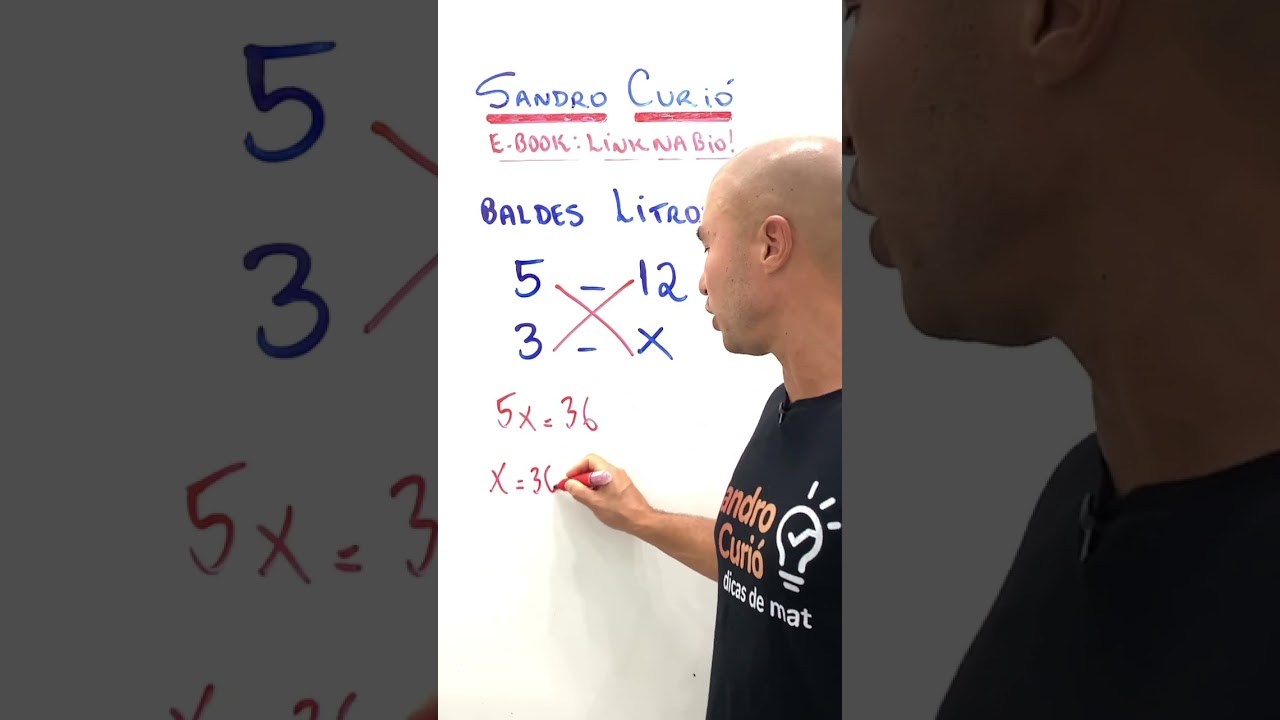 SANDRO CURIÓ
E-BOOK: LINK NA BIO!
BALDES LITROS
5 - 12
3 - X
5X = 36
X = 36
andro
Curió
dicas de mat